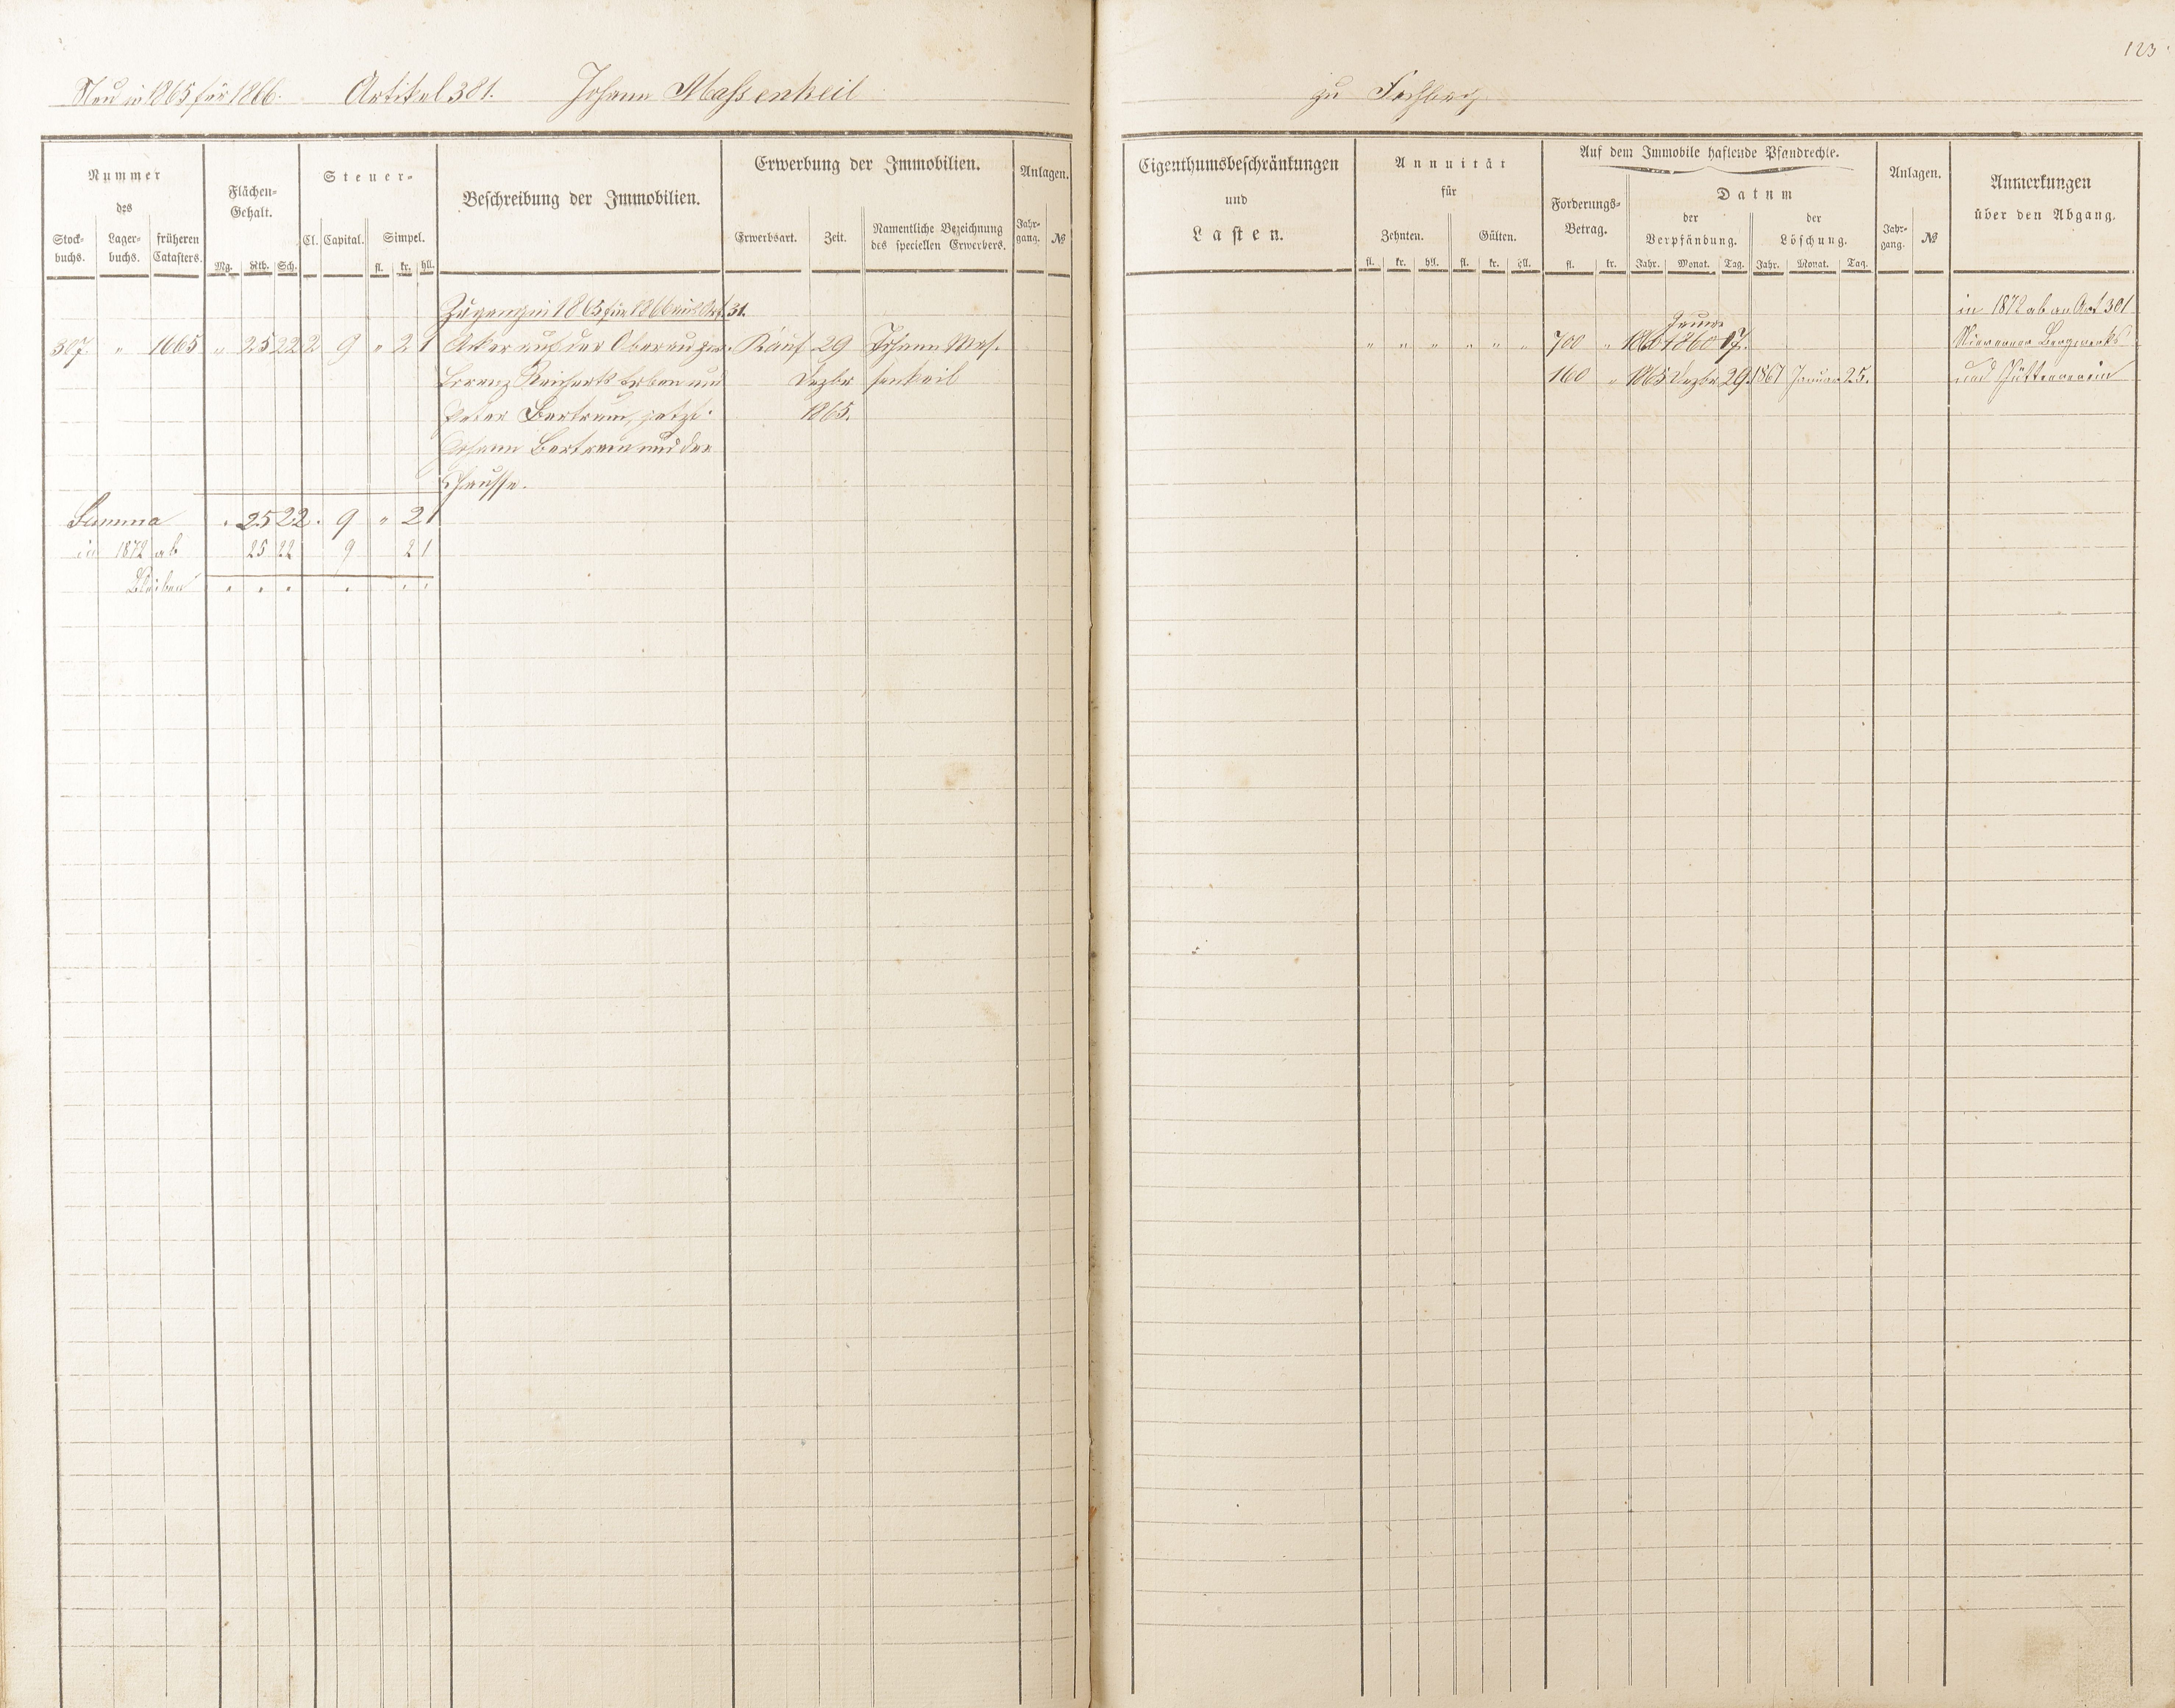 123
Neu in 1865 für 1866. Artikel 381. Johann Massenkeil zu Fachbach
Nummer
des
Stock-
buchs.
Lager-
buchs.
früheren
Catasters.
Flächen-
Gehalt.
Mg. Rth. Sch.
Steuer-
Cl. Capital. Simpel.
fl. kr. hll.
Beschreibung der Immobilien.
Erwerbung der Immobilien.
Erwerbsart. Zeit.
Namentliche Bezeichnung
des speciellen Erwerbers.
Anlagen.
Jahr-
gang. №
Eigenthumsbeschränkungen
und
Lasten.
Annuität
für
Zehnten. Gülten.
fl. kr. hll. fl. kr. hll.
Auf dem Immobile haftende Pfandrechte.
Forderungs-
Betrag.
fl. kr.
Datum
der
Verpfändung.
der
Löschung.
Jahr. Monat. Tag. Jahr. Monat. Tag.
Anlagen.
Jahr-
gang. №
Anmerkungen
über den Abgang.
Zugang in 1865 für 1866 aus Art. 31.
in 1872 ab an Art 301
307. " 1665 " 25 22 2 9 " 2 1 Acker auf der Oberau zw. Kauf 29 Johann Mas-
" " " " " " 700 " 1860 17.
Bergwerks
Lorenz Reicherts Erben und Dezbr senkeil
160 " 1865 Dezbr 29. 1867 Januar 25.
und Hüttenverein
Peter Bertram, jetzt 1865.
Johann Bertram und der
Chaussee.
Summa . 25 22 . 9 " 2 1
in 1872 ab 25 22 9 2 1
Bleiben . . . . . .